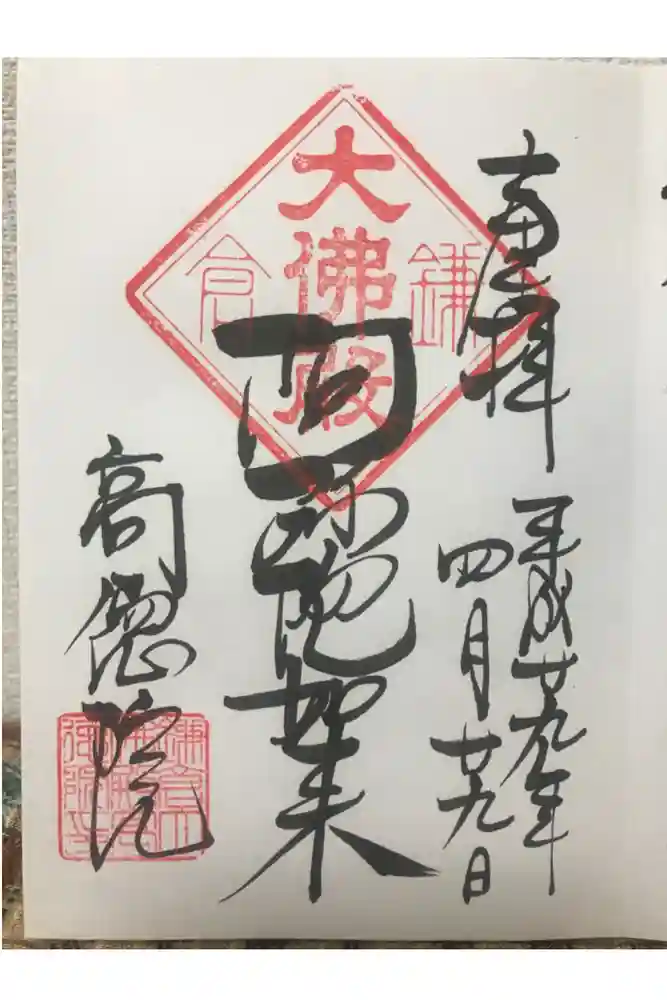 奉拝
平成廿九年
四月廿九日
大佛殿
鎌倉
阿弥陀如来
高徳院